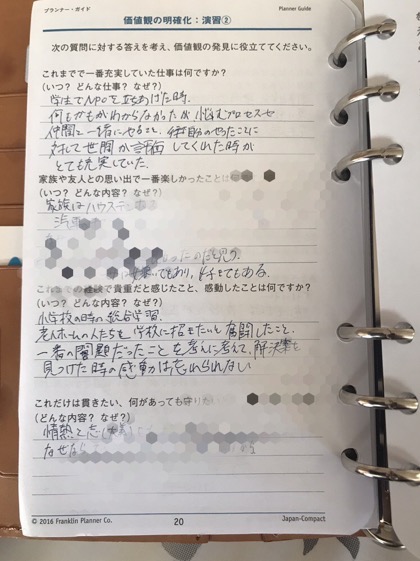 プランナー・ガイド Planner Guide
価値観の明確化：演習②
次の質問に対する答えを考え、価値観の発見に役立ててください。
これまでで一番充実していた仕事は何ですか?
(いつ? どんな仕事? なぜ?)
学生でNPOを立ちあげた時。
何もかもがわからなかったが悩むプロセスや
仲間と一緒にやること、
対して世間が評価してくれた時が
とても充実していた。
家族や友人との思い出で一番楽しかったことは
(いつ? どんな内容? なぜ?)
家族はハウステン
でもあり、 でもある。
経験で貴重だと感じたこと、感動したことは何ですか?
(いつ? どんな内容? なぜ?)
小学校の時の総合学習。
老人ホームの人たちを学校に招きたいと奮闘したこと。
一番の問題だったことを考えに考えて、解決案を
見つけた時の感動は忘れられない
これだけは貫きたい、何があっても守りたい
(どんな内容? なぜ?)
情熱と志
なぜな
© 2016 Franklin Planner Co. 20 Japan-Compact